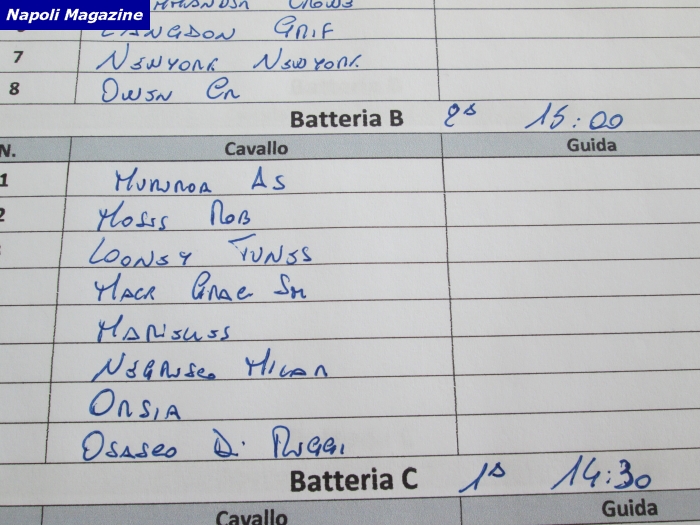 Napoli Magazine
LANGDON GRIF
7 NEWYORK NEWYORK
8 OWEN CR
Batteria B 2ª 15:00
N. Cavallo Guida
1 MURUROA AS
2 MOSES ROB
LOONEY TUNES
MACK GRACE SM
NEGRESCO MILAR
ORSIA
OSASCO DI RUGGI
Batteria C 1ª 14:30
Cavallo Guida